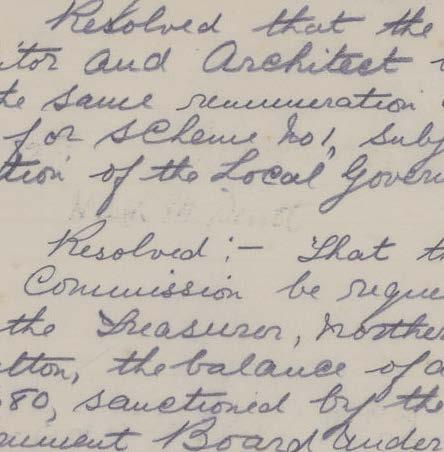 Resolved that the
itor and Architect
the same remuneration
for Scheme No 1, subj
tion of the Local Govern
Resolved :- That th
Commission be reque
the Treasurer, Norther
lton, the balance of a
80, sanctioned by the
rnment Board under